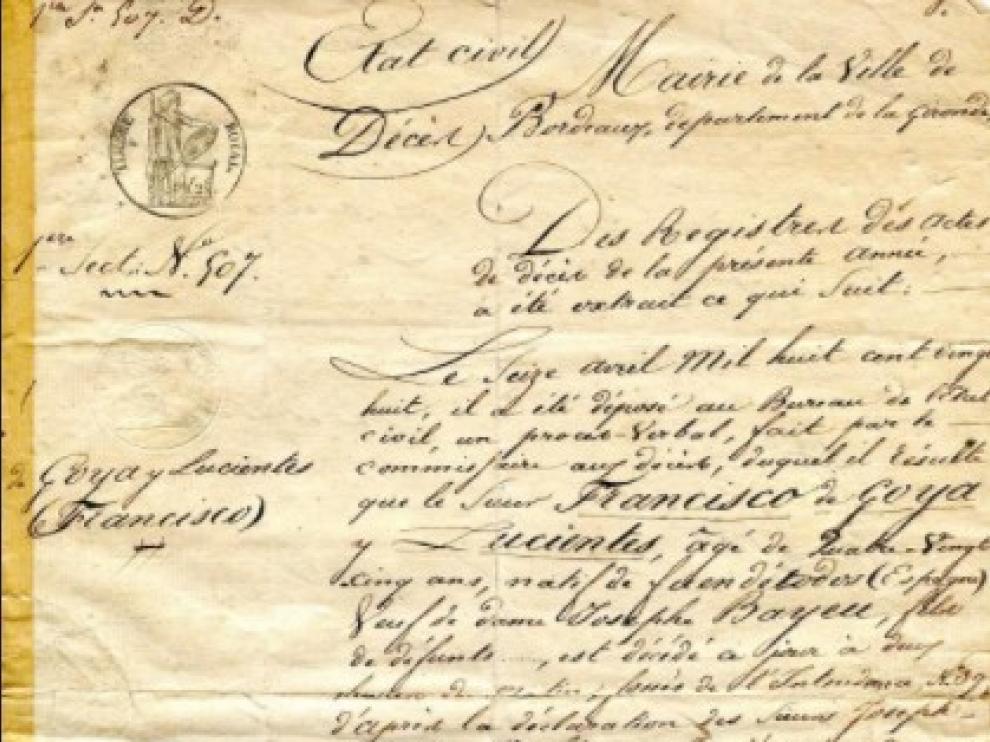 1ère Son 507. D.
État civil
Mairie de la Ville de
Décès
Bordeaux, département de la Gironde
TIMBRE ROYAL
1ère
Sect: N.º 507.
Des Registres des actes
de décès de la présente année,
a été extrait ce qui suit:
Le Seize avril Mil huit cent vingt
huit, il a été déposé au Bureau de l'État
civil, un procès-Verbal, fait par le
commissaire aux décès, duquel il résulte
de Goya y Lucientes
(Francisco)
que le Sieur Francisco de Goya
y Lucientes, âgé de Quatre-Vingt
cinq ans, natif de fuendétodos (Espagne)
Veuf de dame Josephe Bayeu, fils
de défunts ....., est décédé ce jour à deux
heures du matin, fossés de l'Intendance N.º 39,
d'après la déclaration des Sieurs Joseph